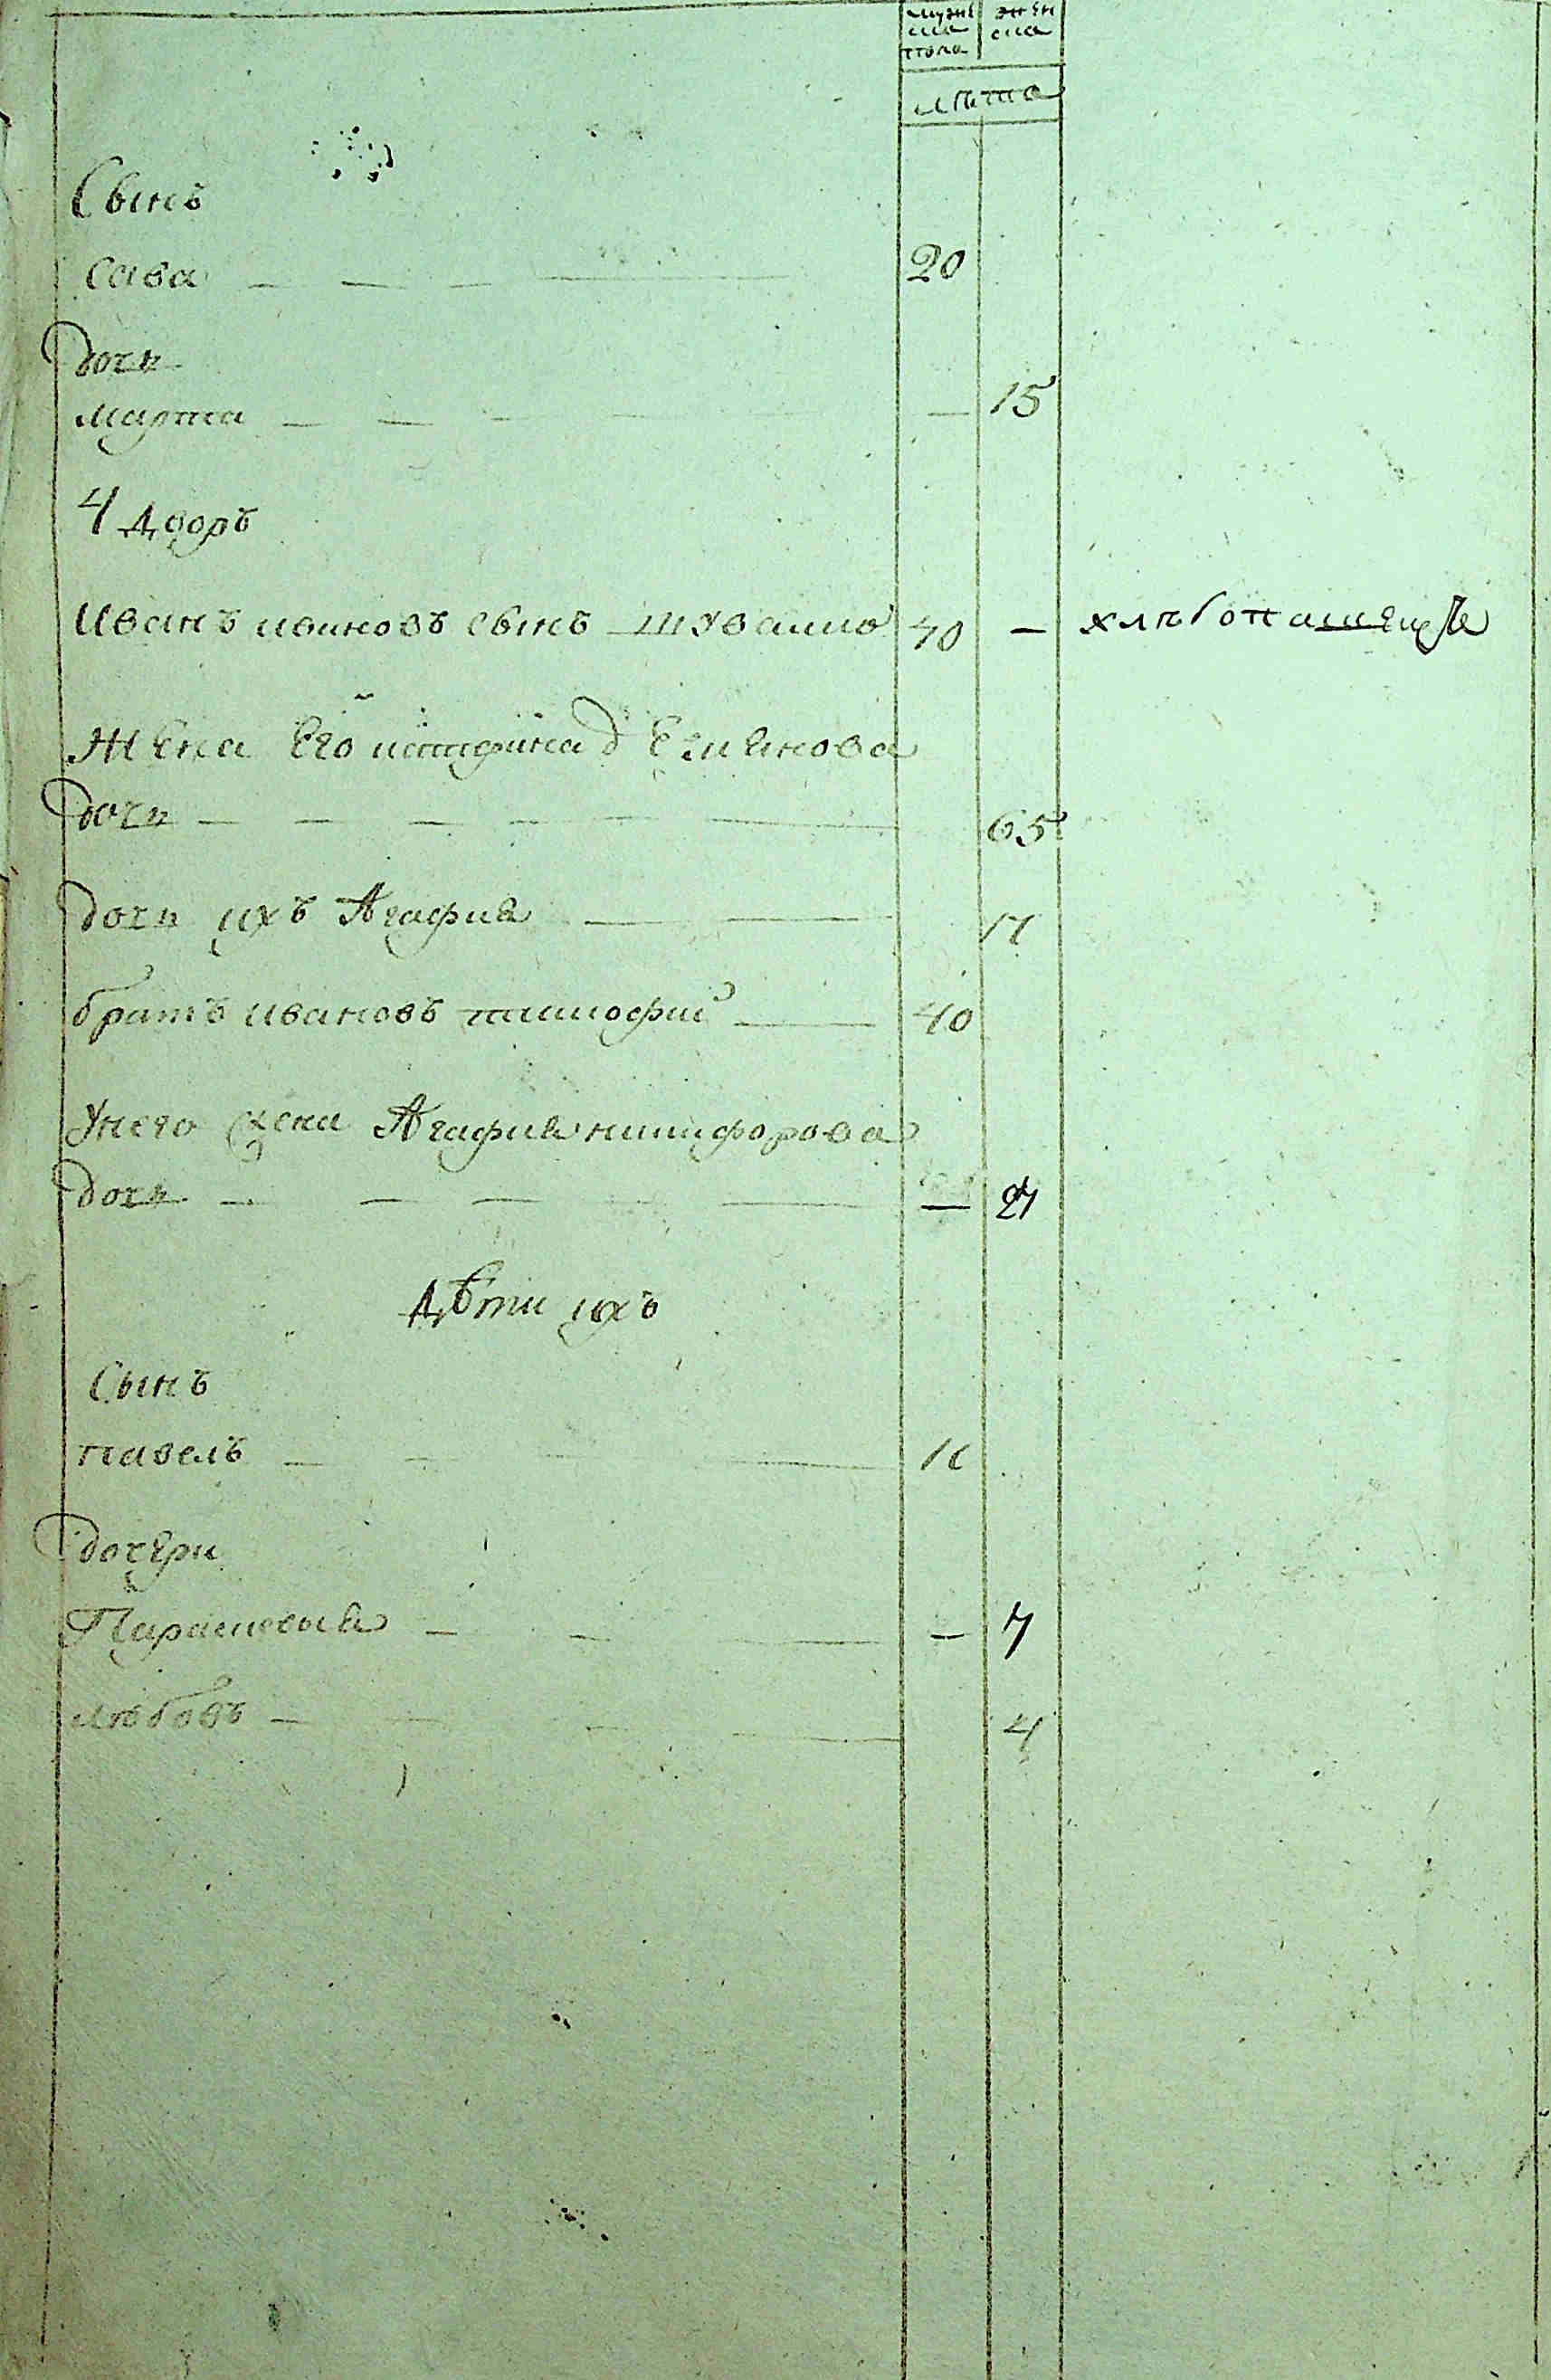 мужеска пола
женска
лѣта
Сынъ
Сава 20
дочь
марта 15
4 дворъ
Иванъ ивановъ сынъ 40 — хлѣбопашецъ
Жена Его
дочь 65
дочь ихъ Агафия 17
братъ ивановъ тимофий 40
Унего жена Агафия никифорова
дочь — 27
дѣти ихъ
Сынъ
павелъ
дочери
Парасковыя — 7
любовъ 4